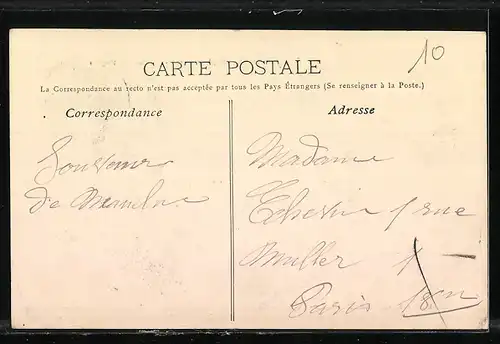 10
CARTE POSTALE
La Correspondance au recto n'est pas acceptée par tous les Pays Étrangers (Se renseigner à la Poste.)
Correspondance
Adresse
Souvenir
de
Madame
rue
Muller 1
Paris 18